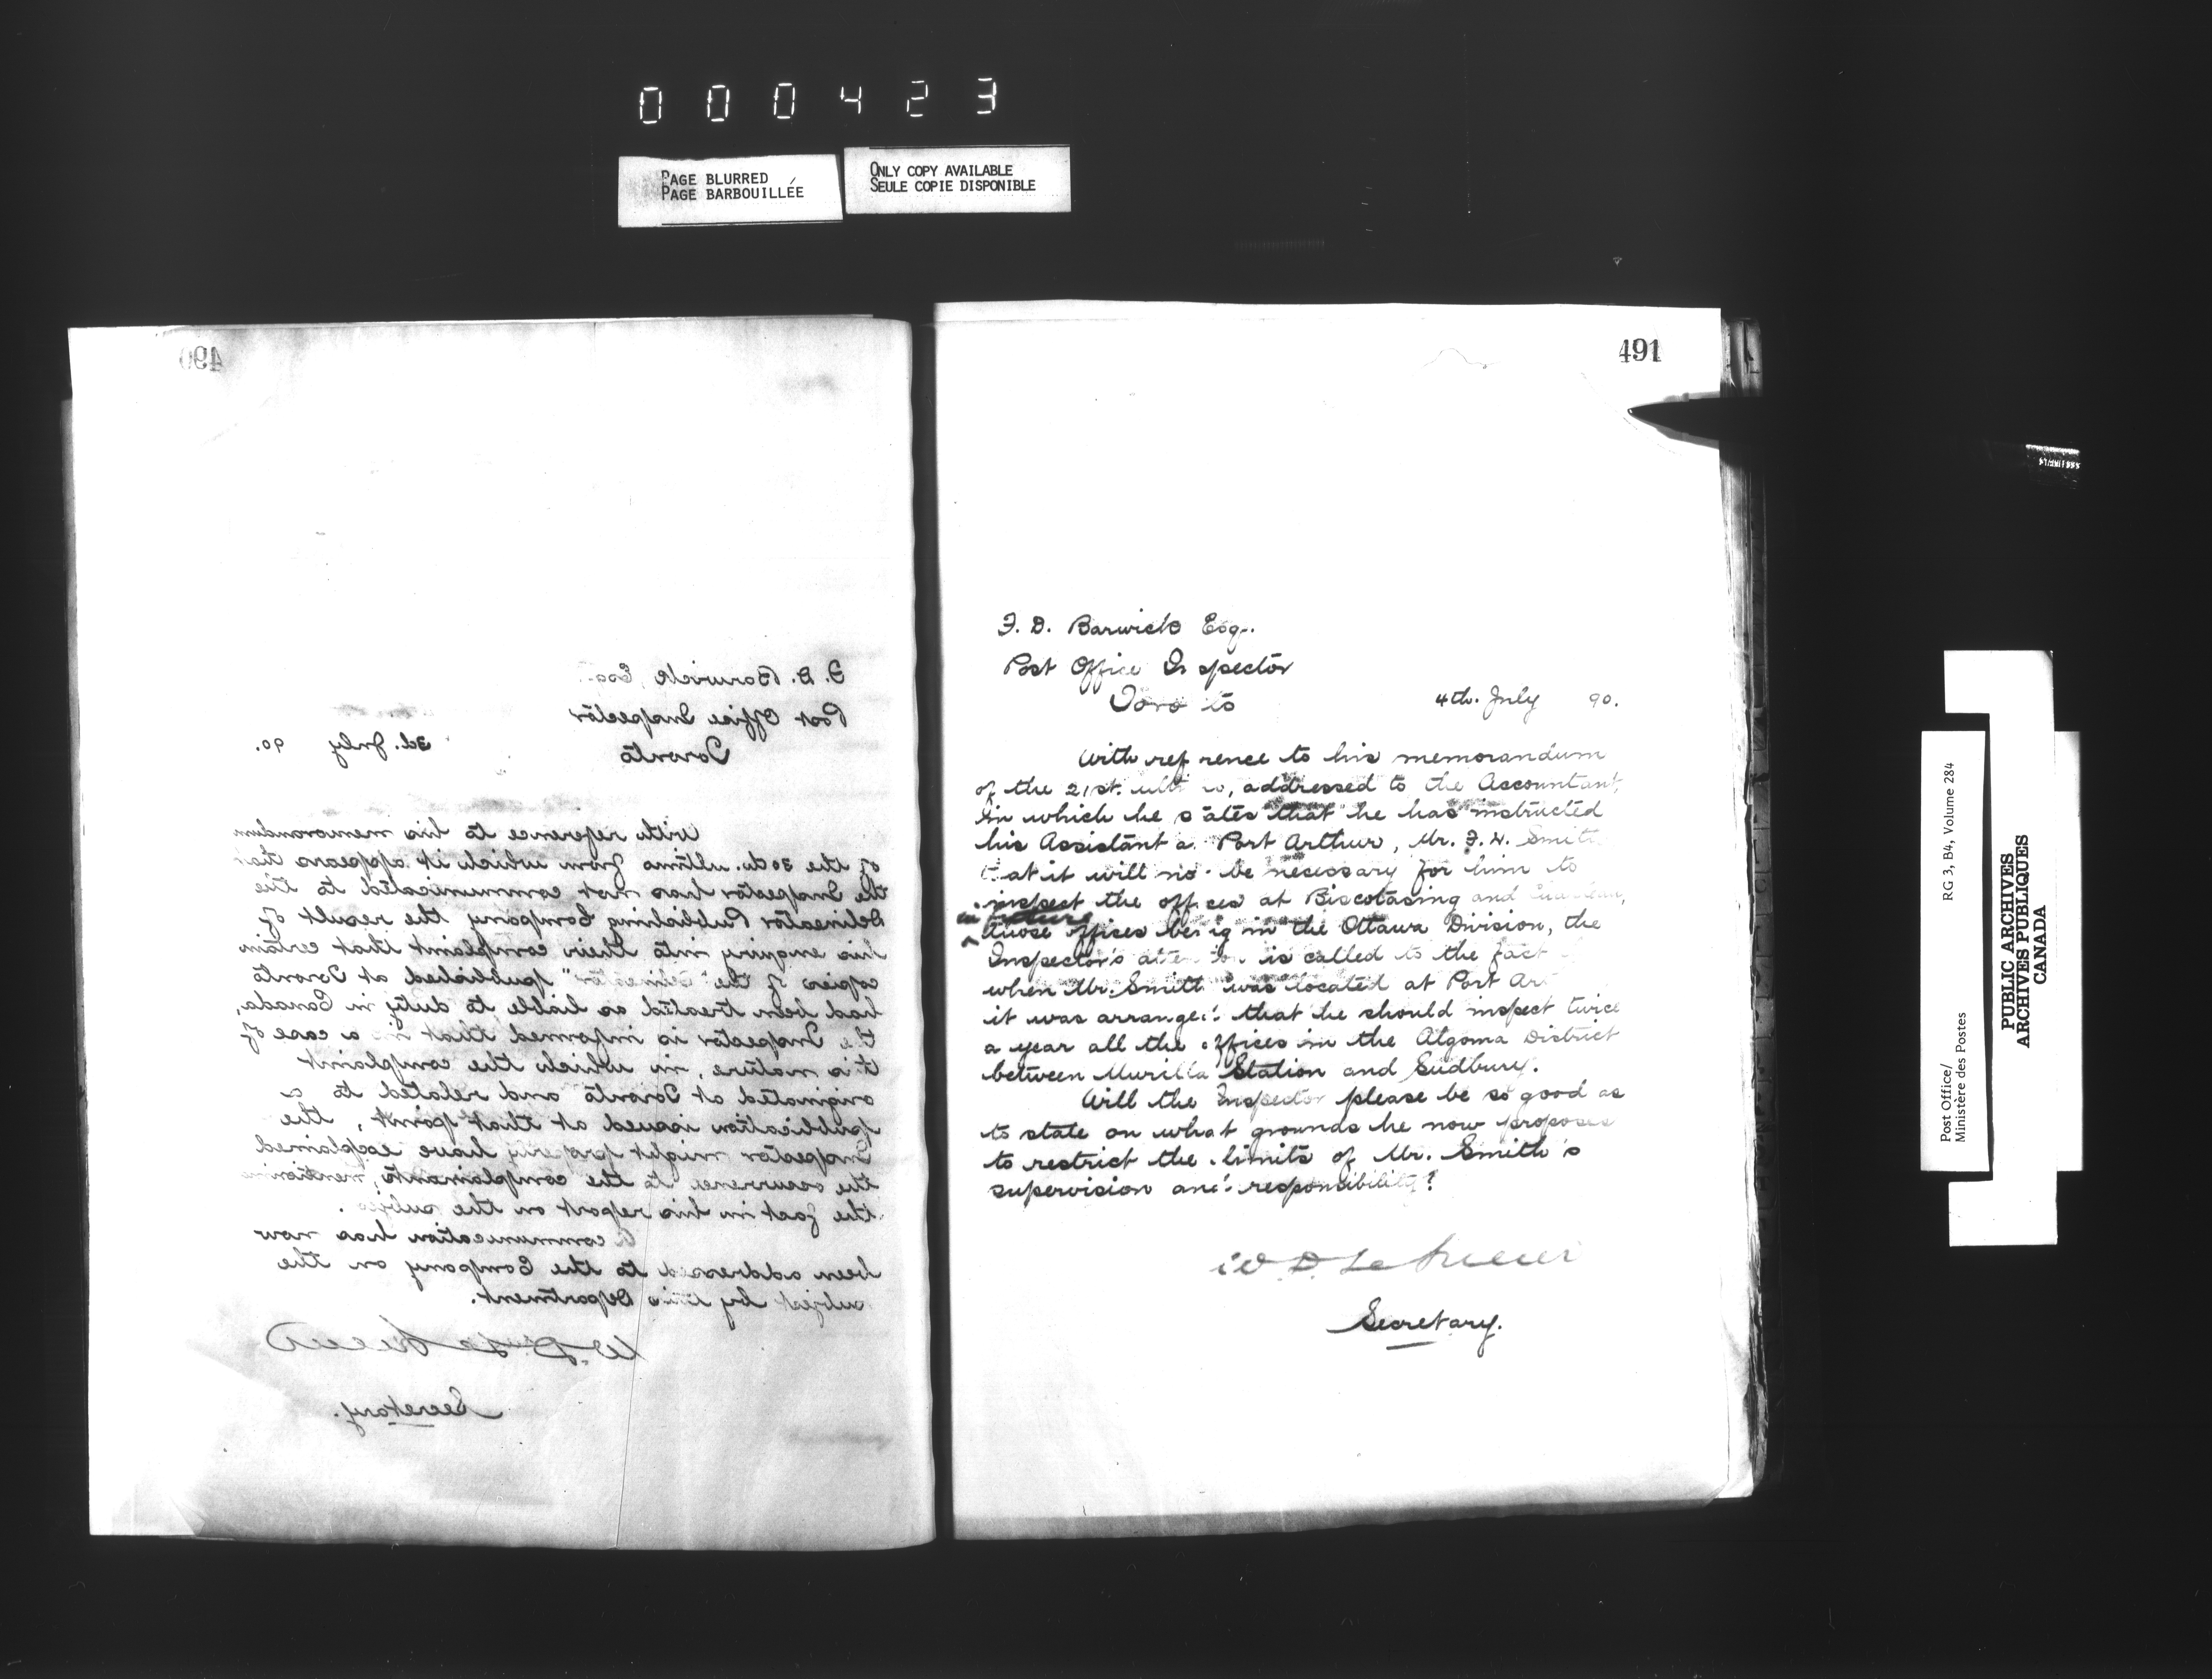 000423
PAGE BLURRED
PAGE BARBOUILLÉE
ONLY COPY AVAILABLE
SEULE COPIE DISPONIBLE
490
F. D. Barwick Esq.
Post Office Inspector
Toronto
3d. July 90.
With reference to his memorandum
of the 30th. ultimo from which it appears that
the Inspector has not communicated to the
Delineator Publishing Company the result of
his enquiry into their complaint that certain
copies of the "Delineator" published at Toronto
had been treated as liable to duty in Canada,
the Inspector is informed that in a case of
this nature, in which the complaint
originated at Toronto and related to a
publication issued at that point, the
Inspector might properly have explained
the occurrence to the complainants, mentioning
the fact in his report on the subject.
A communication has now
been addressed to the Company on the
subject by this Department.
W. D. LeSueur
Secretary.
491
F. D. Barwick Esq.
Post Office Inspector
Toronto
4th. July 90.
With reference to his memorandum
of the 21st. ultimo, addressed to the Accountant,
in which he states that he has instructed
his Assistant at Port Arthur, Mr. F. W. Smith
that it will not be necessary for him to
inspect the offices at Biscotasing and
in future
those offices being in the Ottawa Division, the
Inspector's attention is called to the fact
when Mr. Smith was located at Port Ar
it was arranged that he should inspect twice
a year all the offices in the Algoma District
between Murilla Station and Sudbury.
Will the Inspector please be so good as
to state on what grounds he now proposes
to restrict the limits of Mr. Smith's
supervision and responsibility?
W. D. LeSueur
Secretary.
Post Office/
Ministère des Postes
RG 3, B4, Volume 284
PUBLIC ARCHIVES
ARCHIVES PUBLIQUES
CANADA